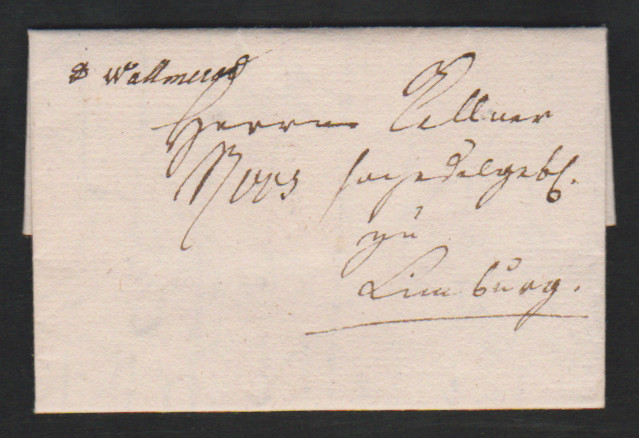 Wallmerod
Herrn Kellner
hochedelgeb.
zu
Limburg.